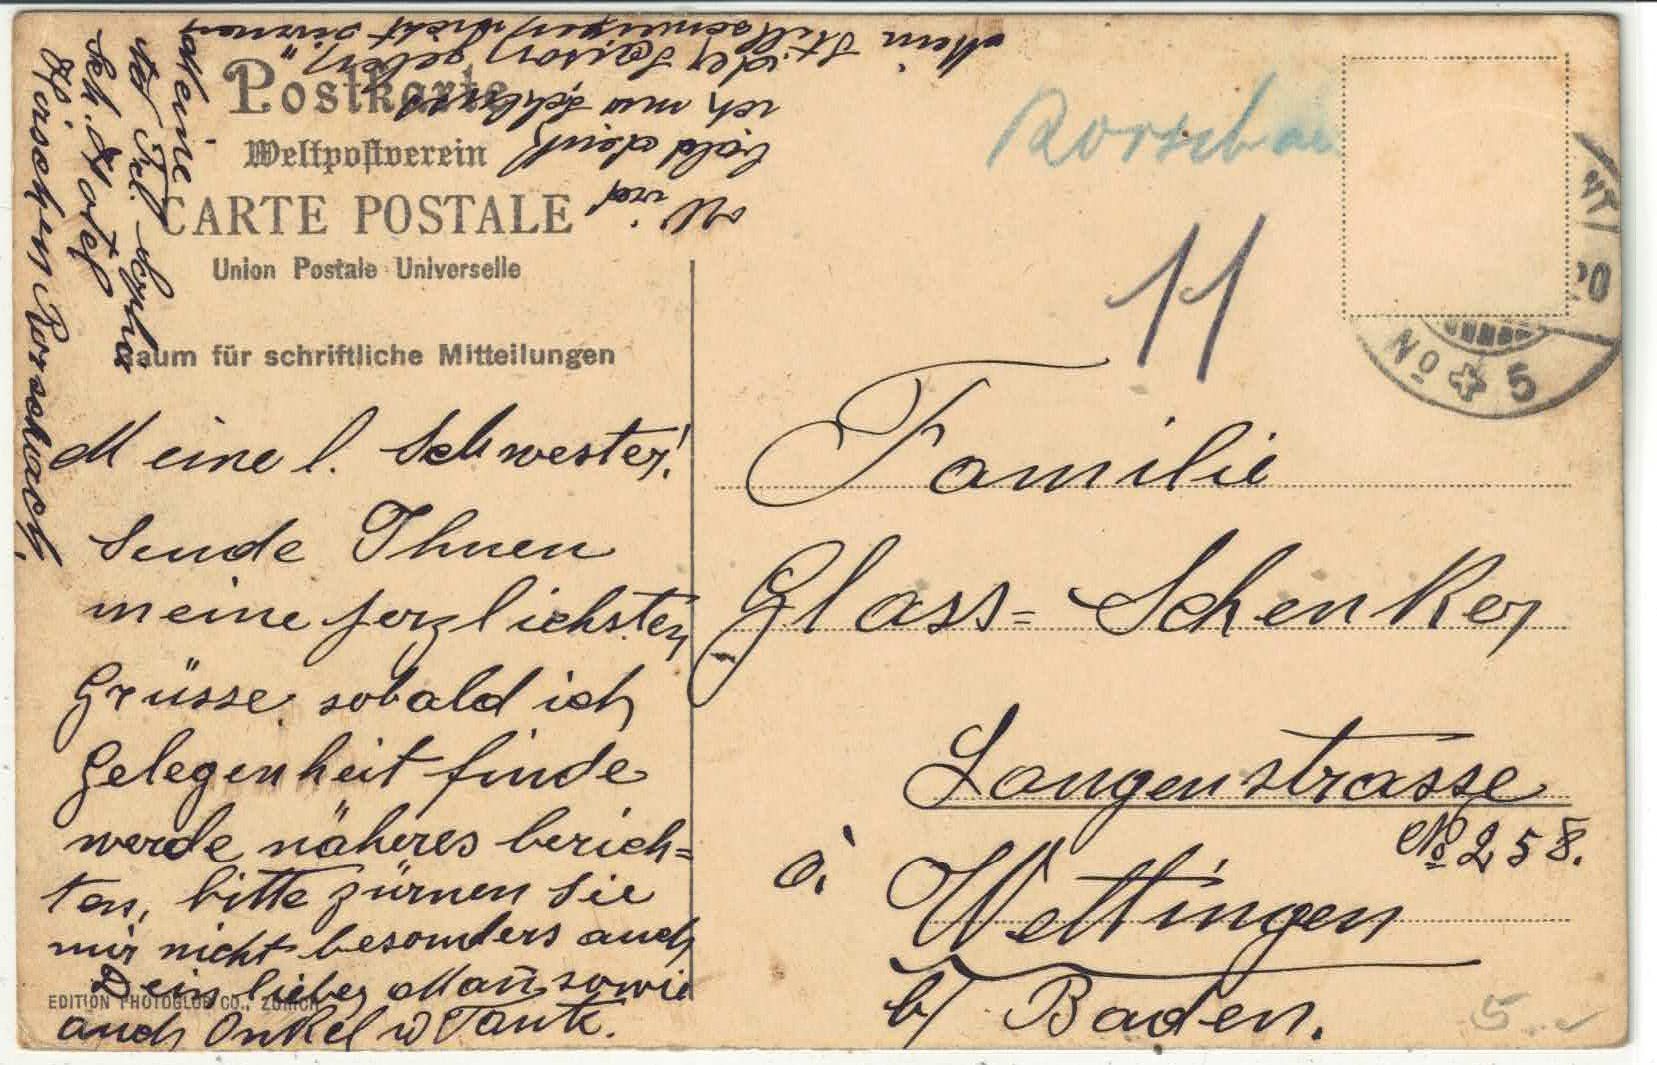 Postkarte
Weltpostverein
CARTE POSTALE
Union Postale Universelle
Raum für schriftliche Mitteilungen
Meine l. Schwester!
Sende Ihnen
meine herzlichsten
Grüsse sobald ich
Gelegenheit finde
werde näheres berich=
ten, bitte zürnen Sie
mir nicht besonders auch
Dein lieber Man̄ sowie
auch Onkel u Tante.
EDITION PHOTOGLOB CO., ZÜRICH
Meine
Hirschen Rorschach
bald
ich nur
der Saison geben
Mein Stillschweigen nicht
Rorschach
11
No 5
Familie
Glass=Schenker
Langenstrasse
No 258.
à Wettingen
b/ Baden.
5